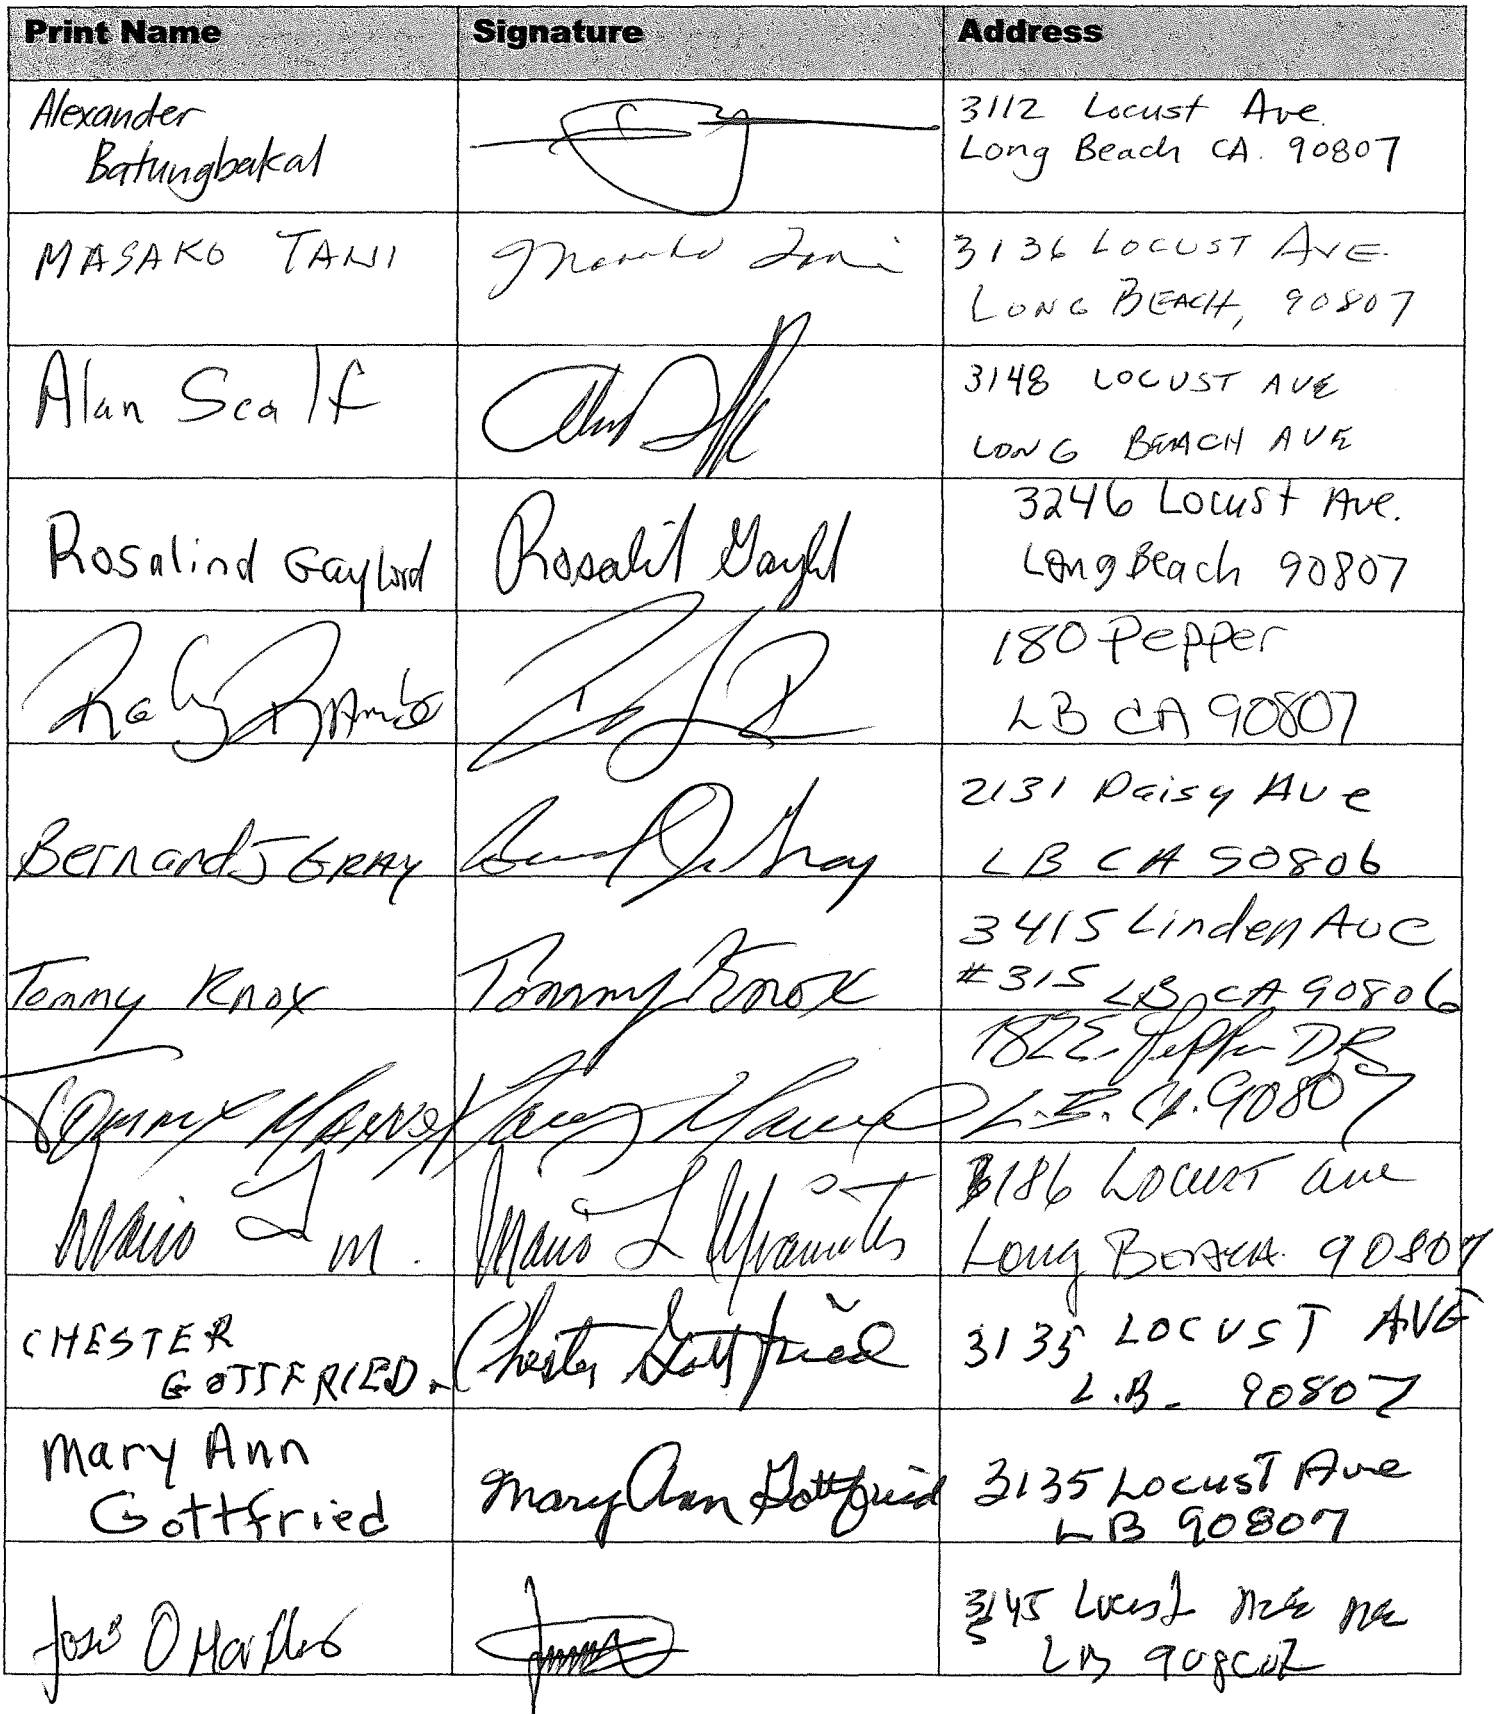 Print Name Signature Address
Alexander
Batungbakal
3112 Locust Ave.
Long Beach CA. 90807
MASAKO TANI
Masako Tani
3136 LOCUST AVE.
LONG BEACH, 90807
Alan Scalf
3148 LOCUST AVE
LONG BEACH AVE
Rosalind Gaylord
3246 Locust Ave.
Long Beach 90807
180 Pepper
LB CA 90807
Bernard J GRAY
2131 Daisy Ave
LB CA 90806
Tommy Knox
Tommy Knox
3415 Linden Ave
#315 LB CA 90806
182 E. Pepper DR
L.B. CA. 90807
Mario L M.
Mario L
3186 Locust ave
Long BEACH. 90807
CHESTER
GOTTFRIED.
Chester Gottfried
3135 LOCUST AVE
L.B. 90807
Mary Ann
Gottfried
Mary Ann Gottfried
3135 Locust Ave
LB 90807
Jose O
3145 Locust
LB